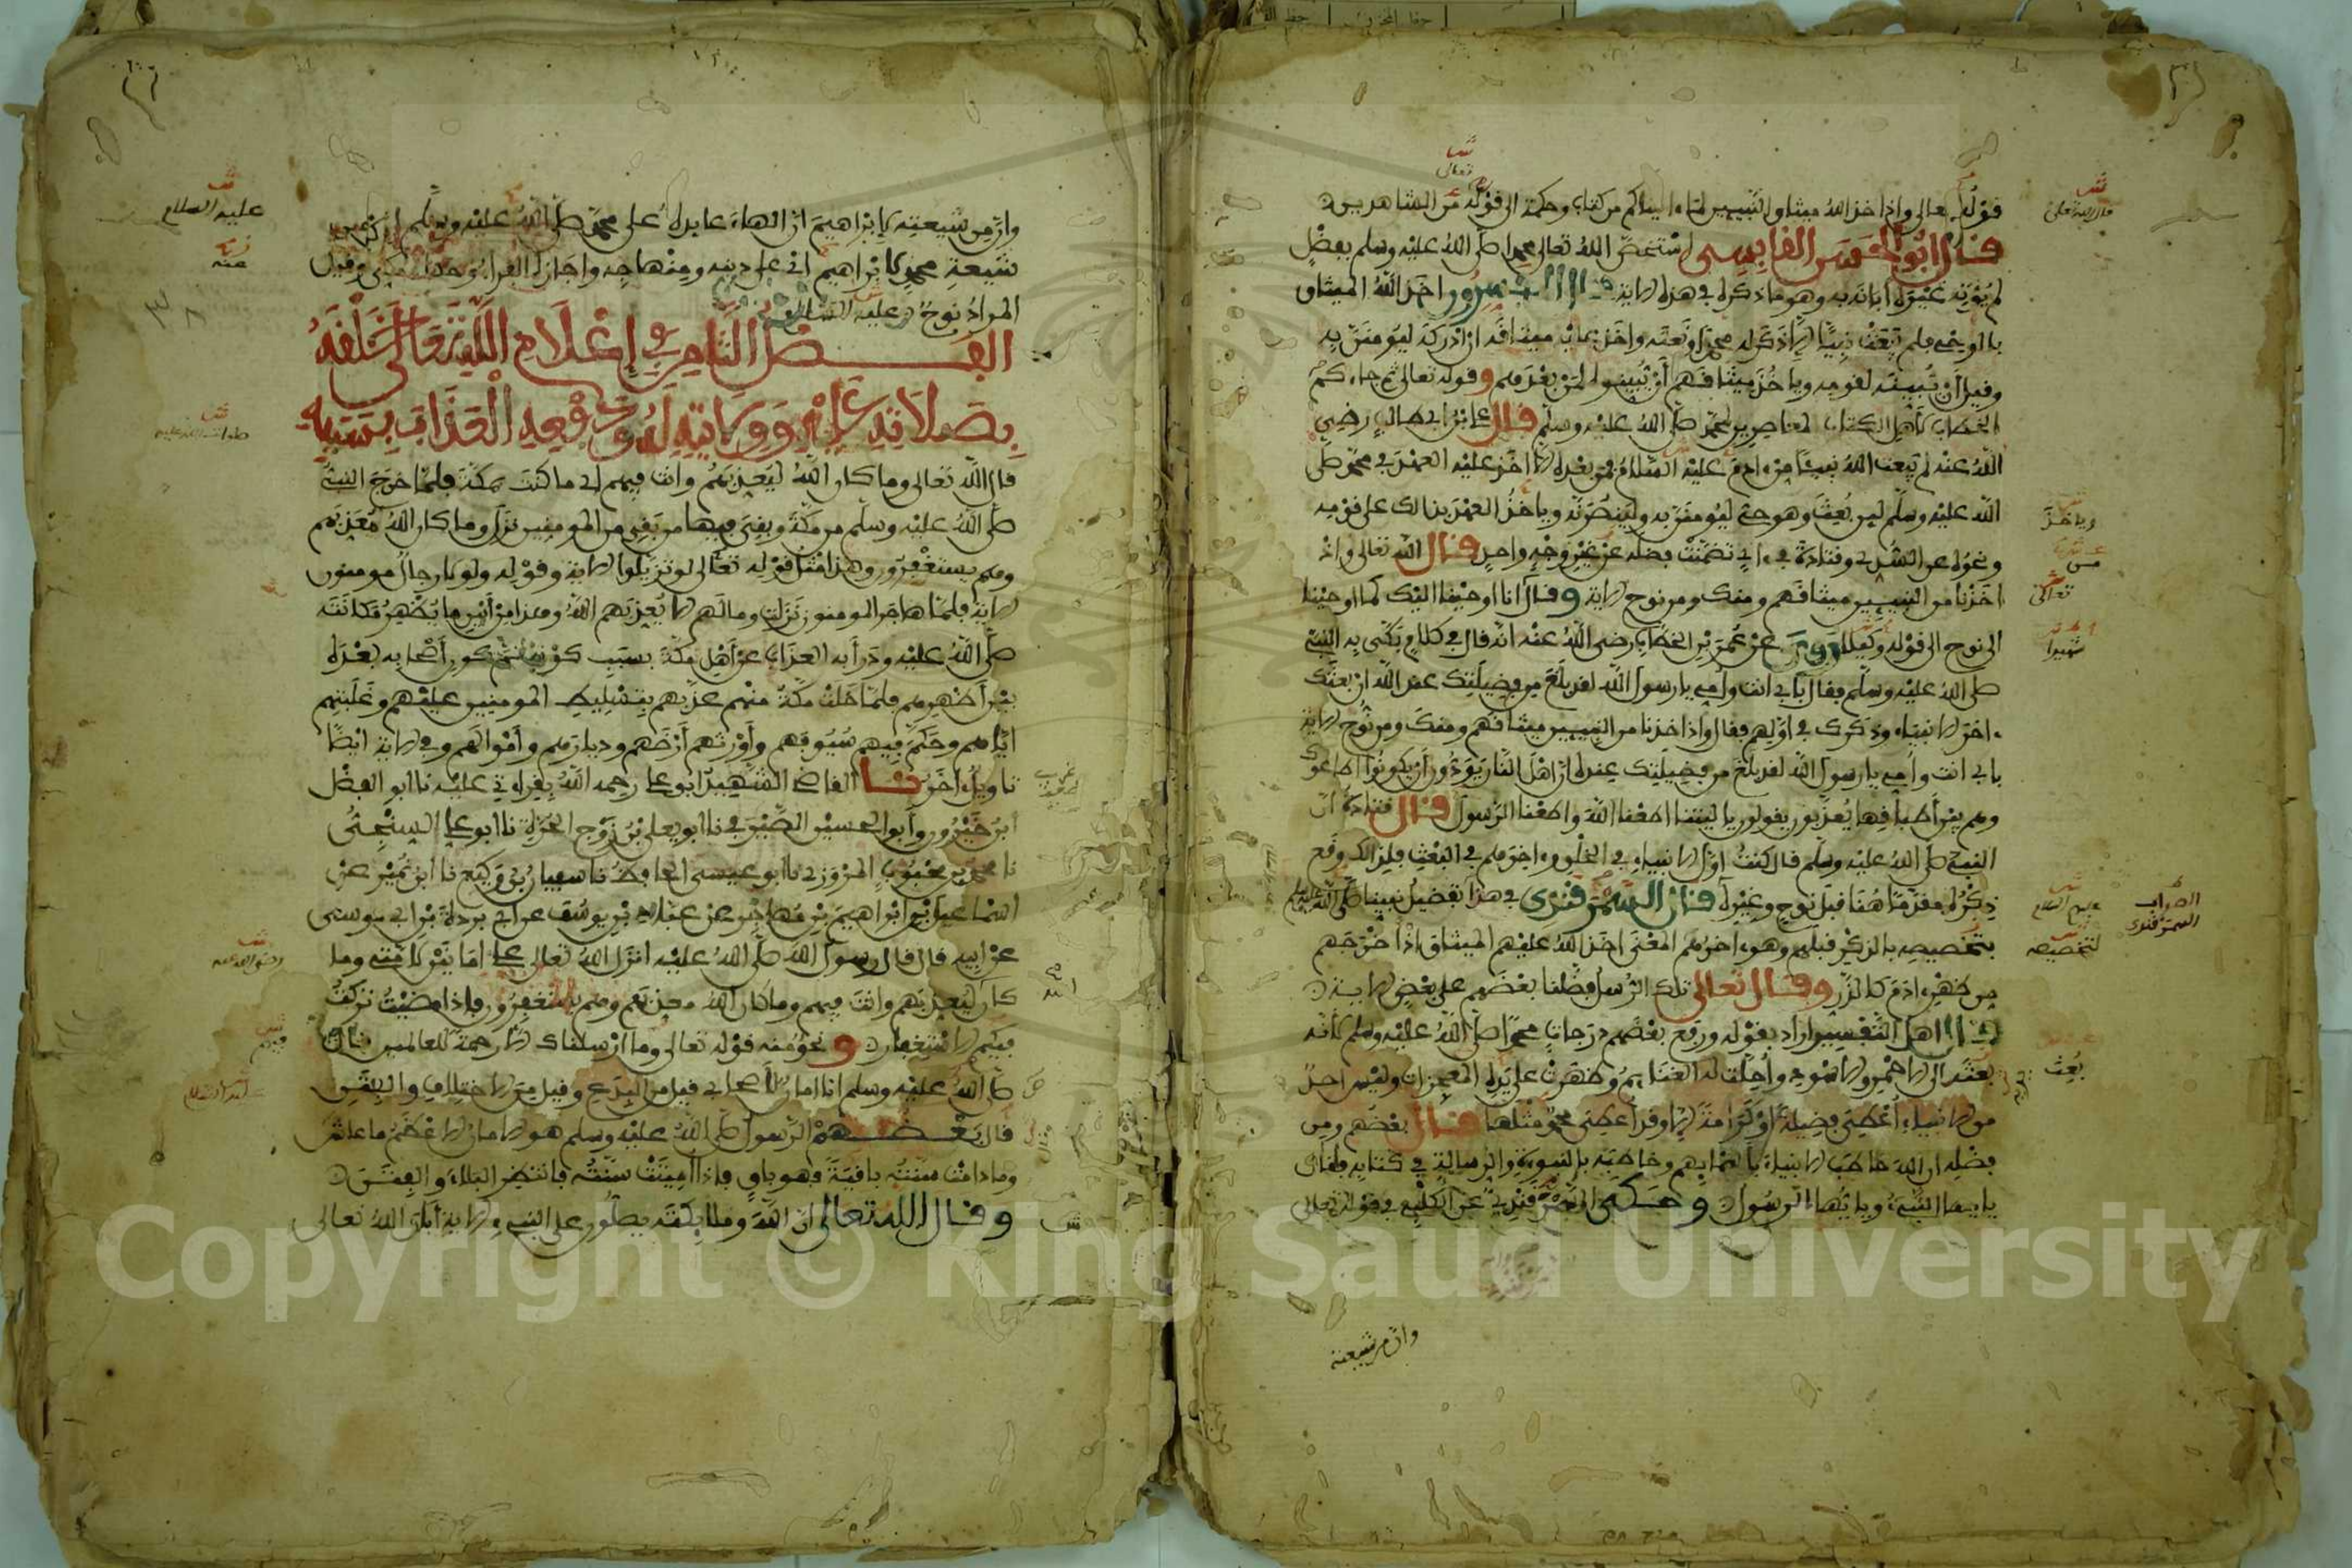 قوله تعالى واذ اخذ الله ميثاق النبيين لما ءاتيناكم من كتاب وحكمة الى قوله من الشاهدين
قال ابو الحسن القابسي استخص الله تعالى محمدا صلى الله عليه وسلم بفضل
لم يؤته غيره ابانه به وهو ما ذكره في هذه الاية قال المفسرون اخذ الله الميثاق
بالوحي فلم يبعث نبيا الا ذكر له محمدا ونعته واخذ عليه ميثاقه ان ادركه ليومنن به
وقيل ان يبينه لقومه وياخذ ميثاقهم ان يبينوه لمن بعدهم وقوله تعالى ثم جاءكم
الخطاب لاهل الكتاب المعاصرين لمحمد صلى الله عليه وسلم قال علي بن ابي طالب رضي
الله عنه لم يبعث الله نبيا من ءادم عليه السلام فمن بعده الا اخذ عليه العهد في محمد صلى
الله عليه وسلم لين بعث وهو حي ليومنن به ولينصرنه وياخذ العهد بذالك على قومه
ونحوه عن السدي وقتادة في ءاي تضمنت فضله من غير وجه واحد قال الله تعالى واذ
اخذنا من النبيين ميثاقهم ومنك ومن نوح الاية وقال انا اوحينا اليك كما اوحينا
الى نوح الى قوله وكيلا روي عن عمر بن الخطاب رضي الله عنه انه قال في كلام بكى به النبي
صلى الله عليه وسلم فقال بابي انت وامي يا رسول الله لقد بلغ من فضيلتك عند الله ان بعثك
ءاخر الانبياء وذكرك في اولهم فقال واذ اخذنا من النبيين ميثاقهم ومنك ومن نوح الاية
بابي انت وامي يا رسول الله لقد بلغ من فضيلتك عنده ان اهل النار يودون ان يكونوا اطاعوك
وهم بين اطباقها يعذبون يقولون يا ليتنا اطعنا الله واطعنا الرسول قال قتادة ان
النبي صلى الله عليه وسلم قال كنت اول الانبياء في الخلق وءاخرهم في البعث فلذالك وقع
ذكره مقدما هنا قبل نوح وغيره قال السمرقندي في هذا تفضيل نبينا صلى الله عليه وسلم
بتخصيصه بالذكر قبلهم وهو ءاخرهم المعنى اخذ الله عليهم الميثاق اذ اخرجهم
من ظهر ءادم كالذر وقال تعالى تلك الرسل فضلنا بعضهم على بعض الاية
قال اهل التفسير اراد بقوله ورفع بعضهم درجات محمدا صلى الله عليه وسلم لانه
بعث الى الاحمر والاسود واحلت له الغنايم وظهرت على يديه المعجزات وليس احد
من الانبياء اعطي فضيلة او كرامة الا وقد اعطي محمد مثلها قال بعضهم ومن
فضله ان الله خاطب الانبياء باسمايهم وخاطبه بالنبوءة والرسالة في كتابه فقال
يا يها النبيء ويا يها الرسول وحكى السمرقندي عن الكلبي في قوله تعالى
وان من شيعته
وان من شيعته لابراهيم ان الهاء عايدة على محمد صلى الله عليه وسلم ان من
شيعة محمد لابراهيم اي على دينه ومنهاجه واجازه الفراء وحكاه مكي وقيل
المراد نوح عليه السلام
الفصل الثامن في إعلام الله تعالى خلقه
بصلاته عليه وولايته له ورفعه العذاب بسببه
قال الله تعالى وما كان الله ليعذبهم وانت فيهم اي ما كنت بمكة فلما خرج النبي
صلى الله عليه وسلم من مكة وبقي فيها من بقي من المومنين نزل وما كان الله معذبهم
وهم يستغفرون وهذا مثل قوله تعالى لو تزيلوا الاية وقوله ولولا رجال مومنون
الاية فلما هاجر المومنون نزلت وما لهم الا يعذبهم الله وهذا من ابين ما يظهر مكانته
صلى الله عليه ودرأ به العذاب عن اهل مكة بسبب كونه ثم كون اصحابه بعده
بين اظهرهم فلما خلت مكة منهم عذبهم بتسليط المومنين عليهم وغلبتهم
اياهم وحكم فيهم سيوفهم واورثهم ارضهم وديارهم واموالهم وفي الاية ايضا
تاويل ءاخر نا القاضي الشهيد ابو علي رحمه الله بقراءتي عليه نا ابو الفضل
ابن خيرون وابو الحسين الصيرفي نا ابو يعلى بن زوج الحرة نا ابو علي السنجي
نا محمد بن محبوب المروزي نا ابو عيسى الحافظ نا سفيان بن وكيع نا ابن نمير عن
اسماعيل بن ابراهيم بن مهاجر عن عباد بن يوسف عن ابي بردة بن ابي موسى
عن ابيه قال قال رسول الله صلى الله عليه انزل الله تعالى علي امانين لامتي وما
كان ليعذبهم وانت فيهم وما كان الله معذبهم وهم يستغفرون فاذا مضيت تركت
فيكم الاستغفار ونحو منه قوله تعالى وما ارسلناك الا رحمة للعالمين قال
صلى الله عليه وسلم انا امان لاصحابي قيل من البدع وقيل من الاختلاف والفتن
قال بعضهم الرسول صلى الله عليه وسلم هو الامان الاعظم ما عاش
وما دامت سنته باقية فهو باق فاذا اميتت سنته فانتظر البلاء والفتن
وقال الله تعالى ان الله وملايكته يصلون على النبي الاية ابان الله تعالى